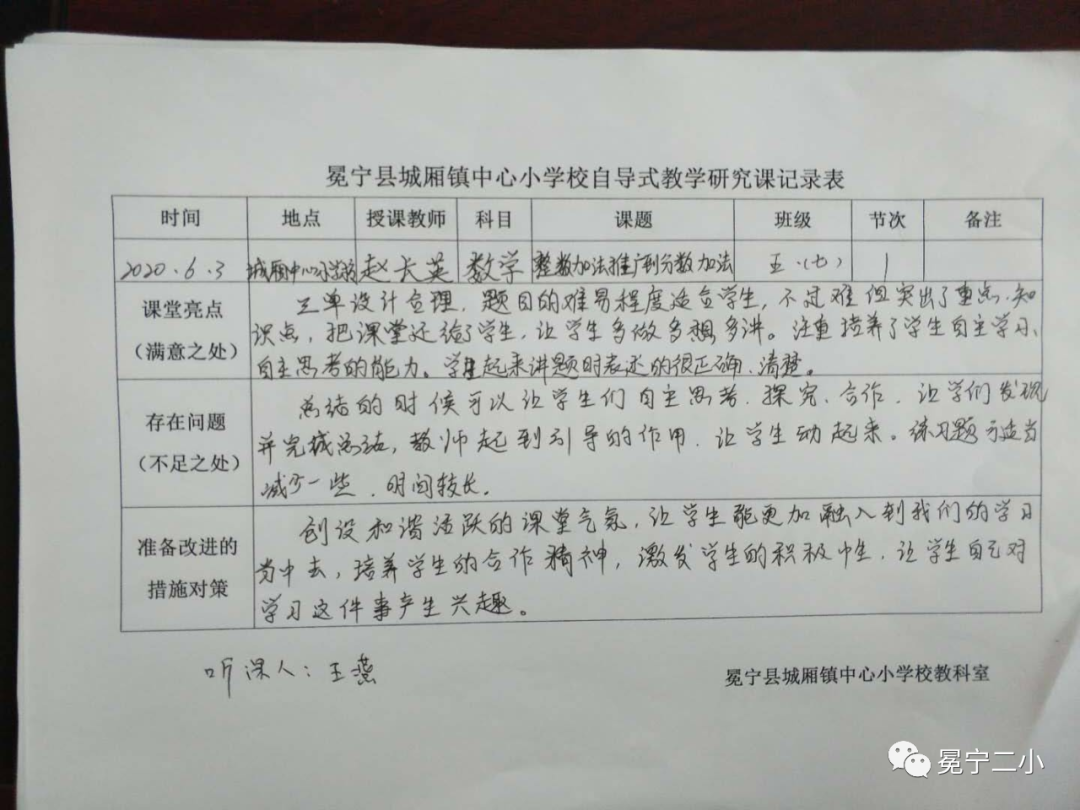 冕宁县城厢镇中心小学校自导式教学研究课记录表
时间 地点 授课教师 科目 课题 班级 节次 备注
2020.6.3 城厢中心小学校 赵长英 数学 整数加法推广到分数加法 五.(七) 1
课堂亮点
(满意之处)
三单设计合理,题目的难易程度适合学生,不过难但突出了重点、知
识点,把课堂还给了学生,让学生多做多想多讲。注重培养了学生自主学习、
自主思考的能力。学生起来讲题时表述的很正确、清楚。
存在问题
(不足之处)
总结的时候可以让学生们自主思考、探究、合作,让学们发现
并完城总结,教师起到引导的作用,让学生动起来。练习题可适当
减少一些,时间较长。
准备改进的
措施对策
创设和谐活跃的课堂气氛,让学生能更加融入到我们的学习
当中去,培养学生的合作精神,激发学生的积极性,让学生自己对
学习这件事产生兴趣。
听课人:王燕
冕宁县城厢镇中心小学校教科室
冕宁二小